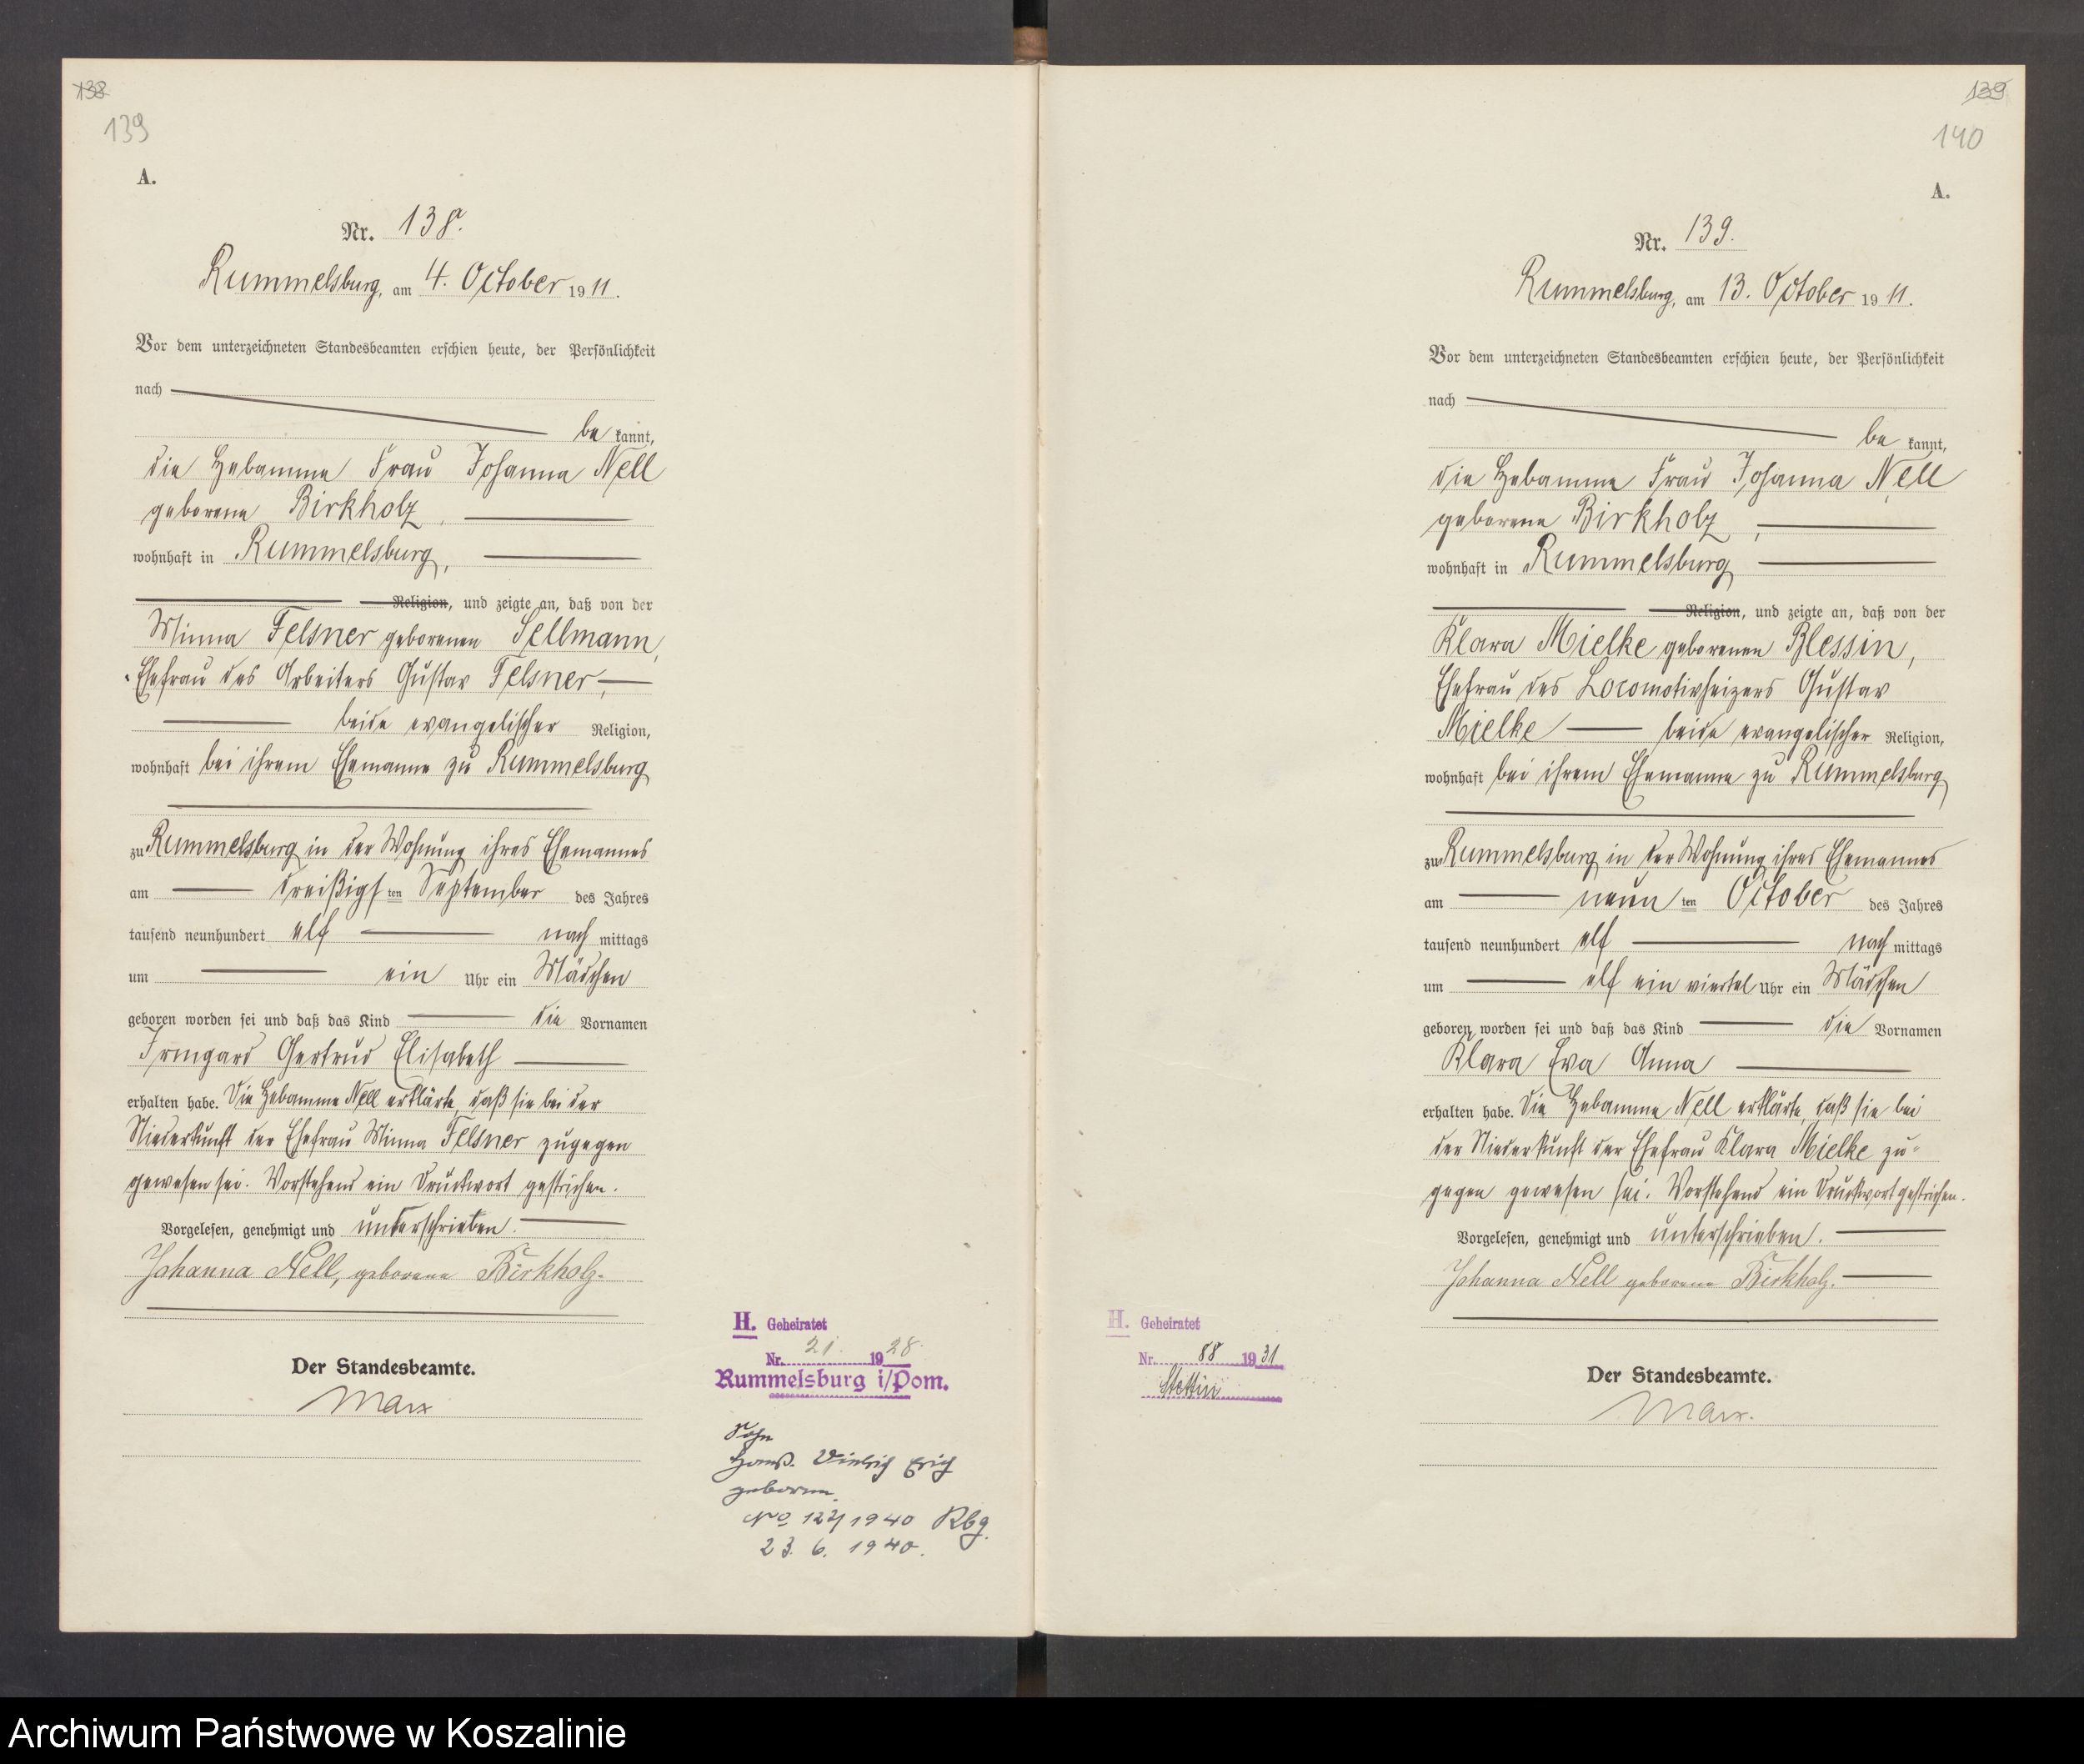 138
139
A.
Nr. 138.
Rummelsburg, am 4. October 1911.
Vor dem unterzeichneten Standesbeamten erschien heute, der Persönlichkeit
nach
be kannt,
die Hebamme Frau Johanna Nell
geborene Birkholz,
wohnhaft in Rummelsburg,
Religion, und zeigte an, daß von der
Minna Felsner geborenen Sellmann,
Ehefrau des Arbeiters Gustav Felsner,
beide evangelischer Religion,
wohnhaft bei ihrem Ehemanne zu Rummelsburg
zu Rummelsburg in der Wohnung ihres Ehemannes
am dreißigs ten September des Jahres
tausend neunhundert elf nach mittags
um ein Uhr ein Mädchen
geboren worden sei und daß das Kind die Vornamen
Irmgard Gertrud Elisabeth
erhalten habe. Die Hebamme Nell erklärte, daß sie bei der
Niederkunft der Ehefrau Minna Felsner zugegen
gewesen sei. Vorstehend ein Druckwort gestrichen.
Vorgelesen, genehmigt und unterschrieben.
Johanna Nell, geborene Birkholz.
Der Standesbeamte.
Marx
H. Geheiratet
Nr. 21. 1928
Rummelsburg i/Pom.
Sohn
Dietrich Erich
geboren
No 122/1940 Rbg.
23. 6. 1940.
139
140
A.
Nr. 139.
Rummelsburg, am 13. October 1911.
Vor dem unterzeichneten Standesbeamten erschien heute, der Persönlichkeit
nach
be kannt,
die Hebamme Frau Johanna Nell
geborene Birkholz,
wohnhaft in Rummelsburg
Religion, und zeigte an, daß von der
Klara Mielke geborenen Blessin,
Ehefrau des Locomotivheizers Gustav
Mielke beide evangelischer Religion,
wohnhaft bei ihrem Ehemanne zu Rummelsburg
zu Rummelsburg in der Wohnung ihres Ehemannes
am neun ten October des Jahres
tausend neunhundert elf nach mittags
um elf ein viertel Uhr ein Mädchen
geboren worden sei und daß das Kind die Vornamen
Klara Eva Anna
erhalten habe. Die Hebamme Nell erklärte, daß sie bei
der Niederkunft der Ehefrau Klara Mielke zu-
gegen gewesen sei. Vorstehend ein Druckwort gestrichen.
Vorgelesen, genehmigt und unterschrieben.
Johanna Nell geborene Birkholz.
Der Standesbeamte.
Marx.
H. Geheiratet
Nr. 88 1931
Stettin
Archiwum Państwowe w Koszalinie